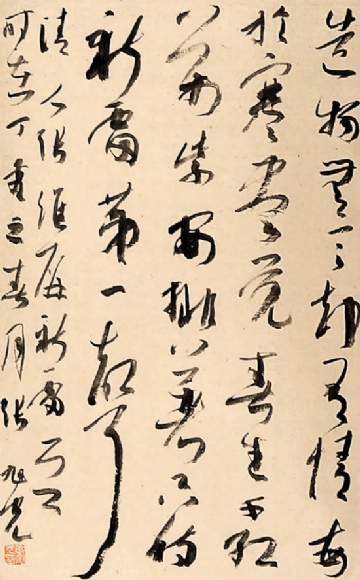 造物無言却有情每
於寒盡覺春生千紅
萬紫安排著只待
新雷第一聲
清人張維屏新雷
時在丁酉之春月張旭光